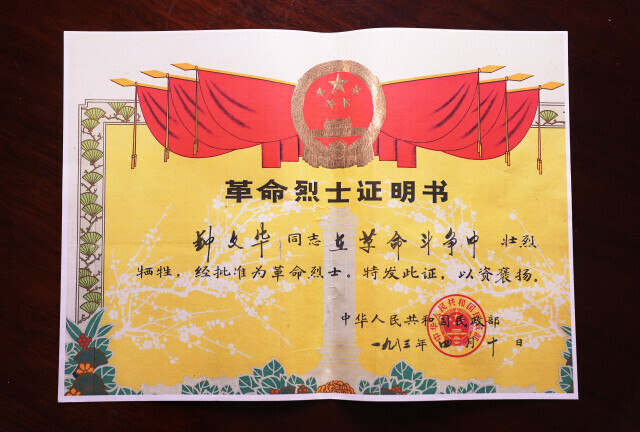 革命烈士证明书
钟文华同志在革命斗争中壮烈
牺牲，经批准为革命烈士。特发此证，以资褒扬。
中华人民共和国民政部
一九八三年四月十日